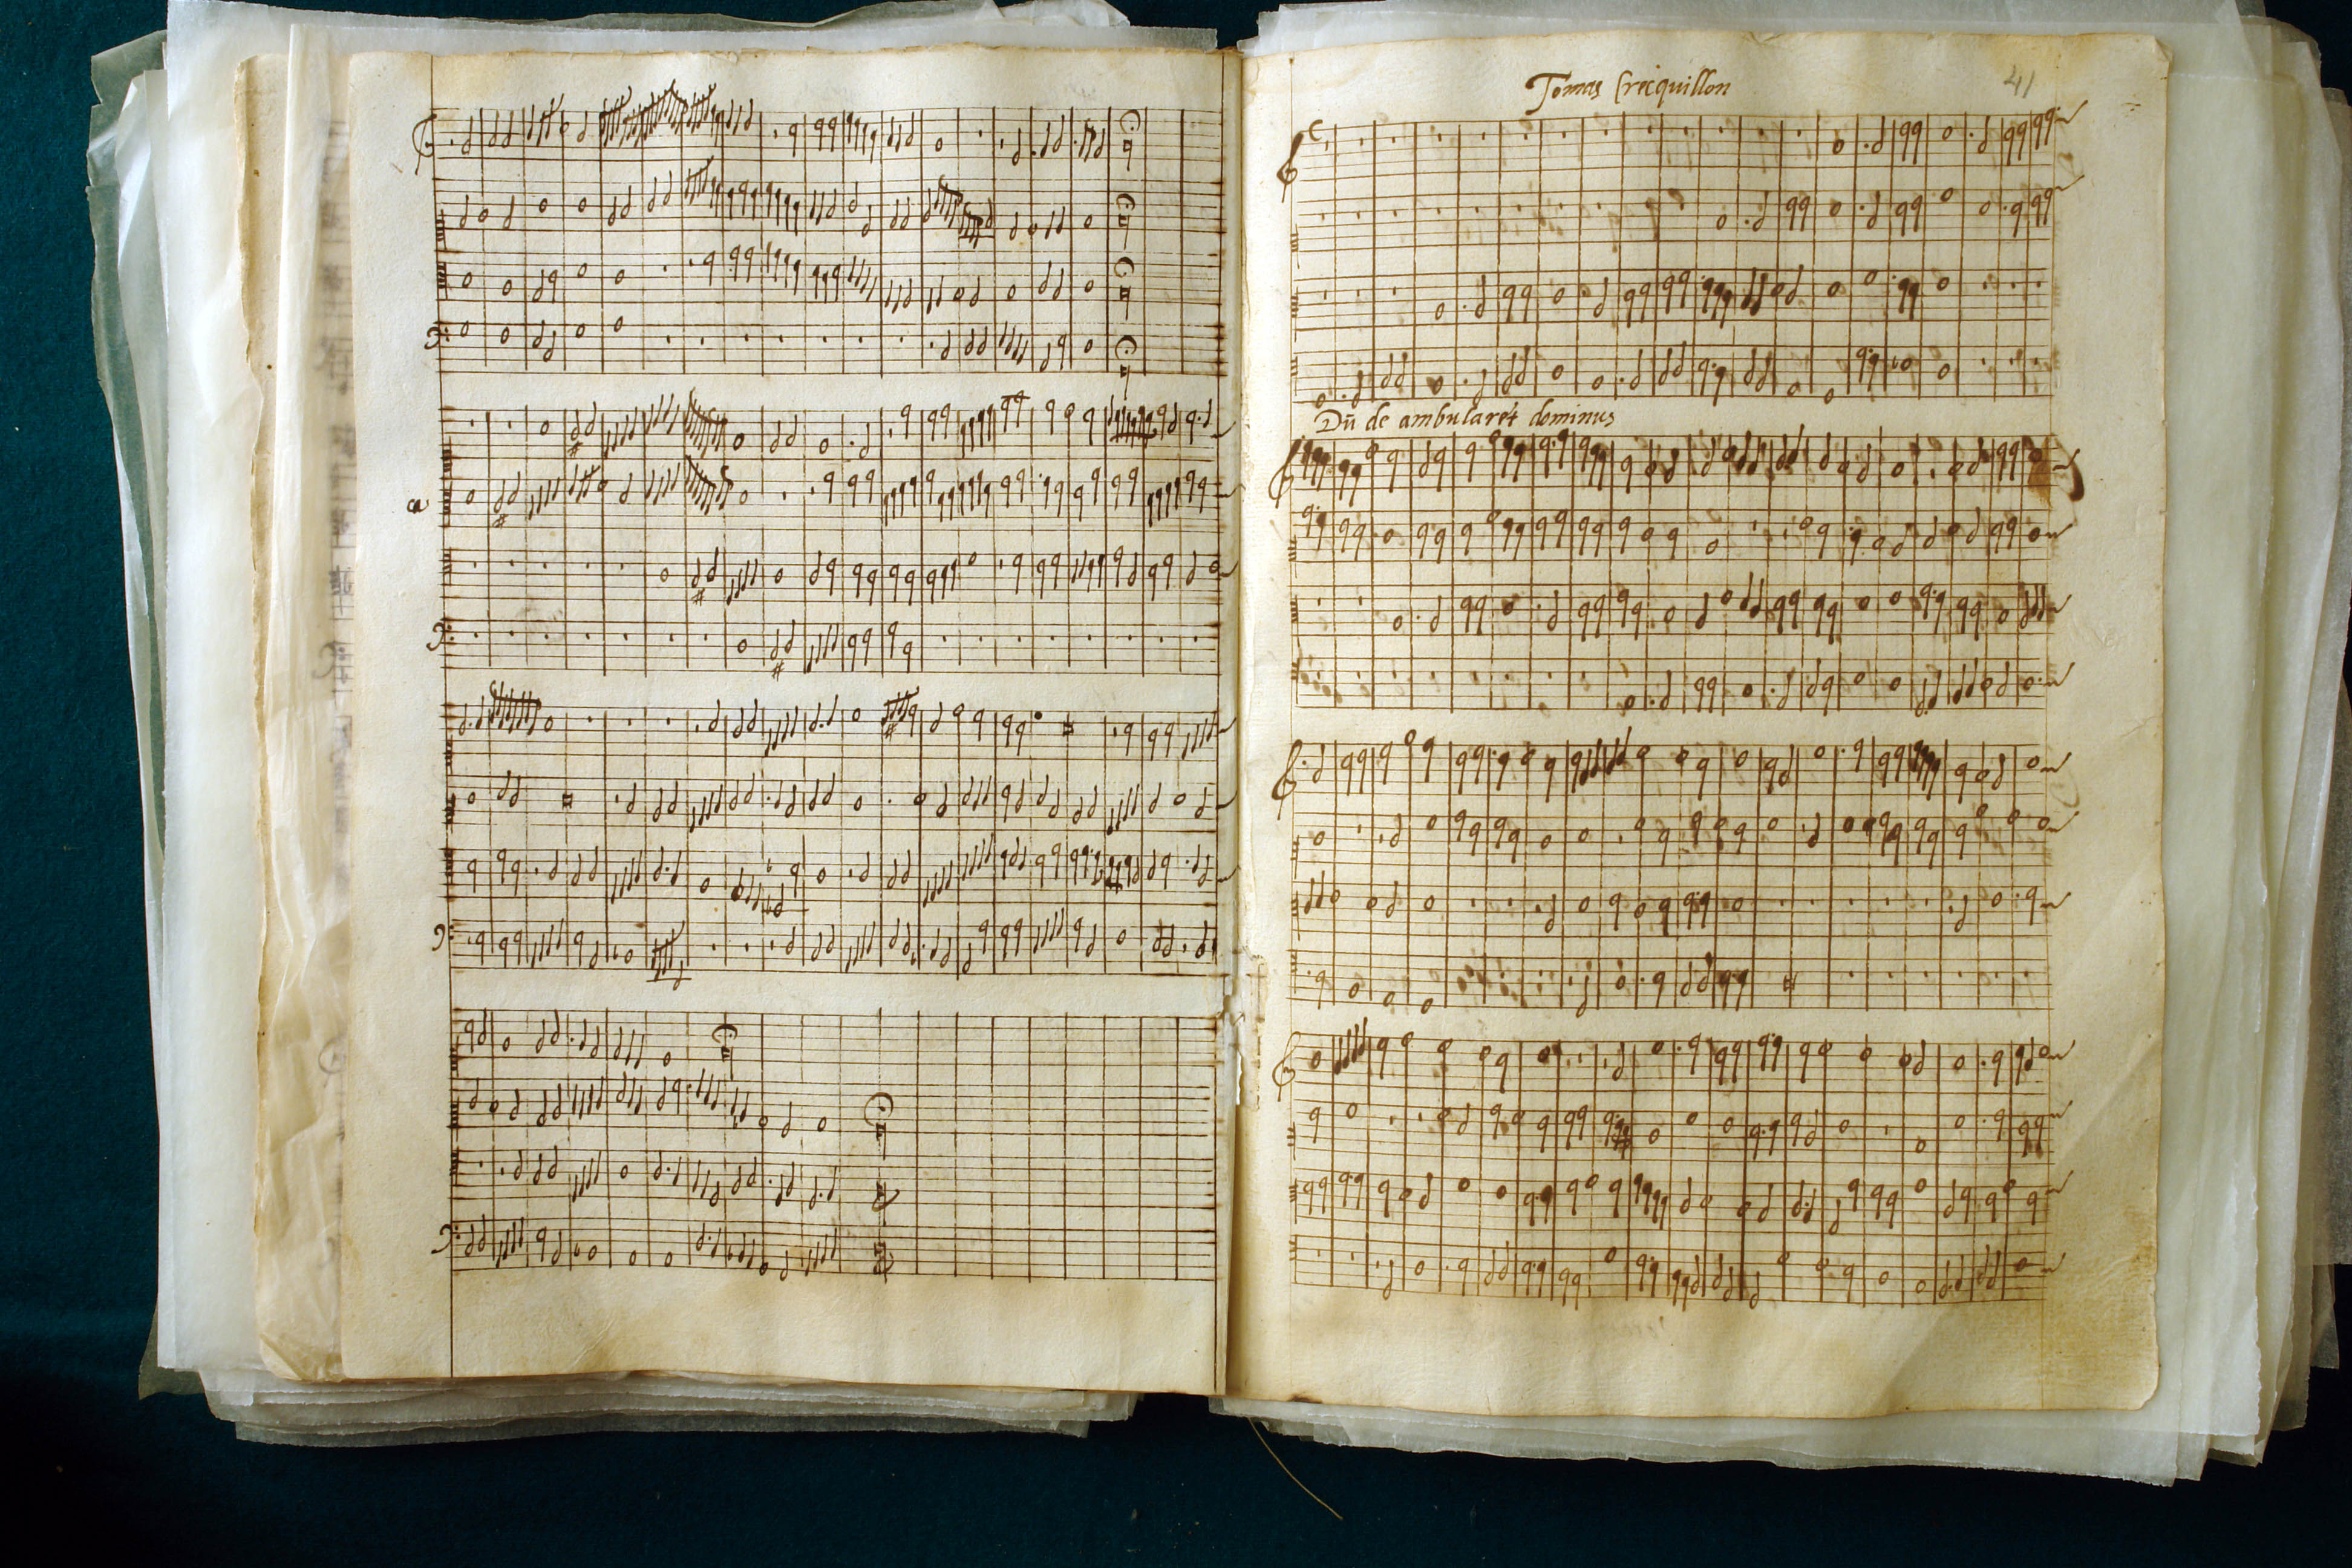 a
Tomas Crecquillon
41
Dū de ambularet dominus